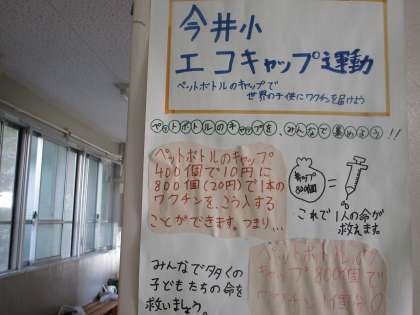 今井小
エコキャップ運動
ペットボトルのキャップで
世界の子供にワクチンを届けよう
ペットボトルのキャップを、みんなで集めよう!!
ペットボトルのキャップ
400個で10円に
800個(20円)で1本の
ワクチンを、こう入する
ことができます。つまり…
キャップ
800個
=
これで1人の命が
救えます。
みんなで多くの
子どもたちの命を
救いましょう。
ペットボトルの
キャップ800個で
ワクチン1個分の